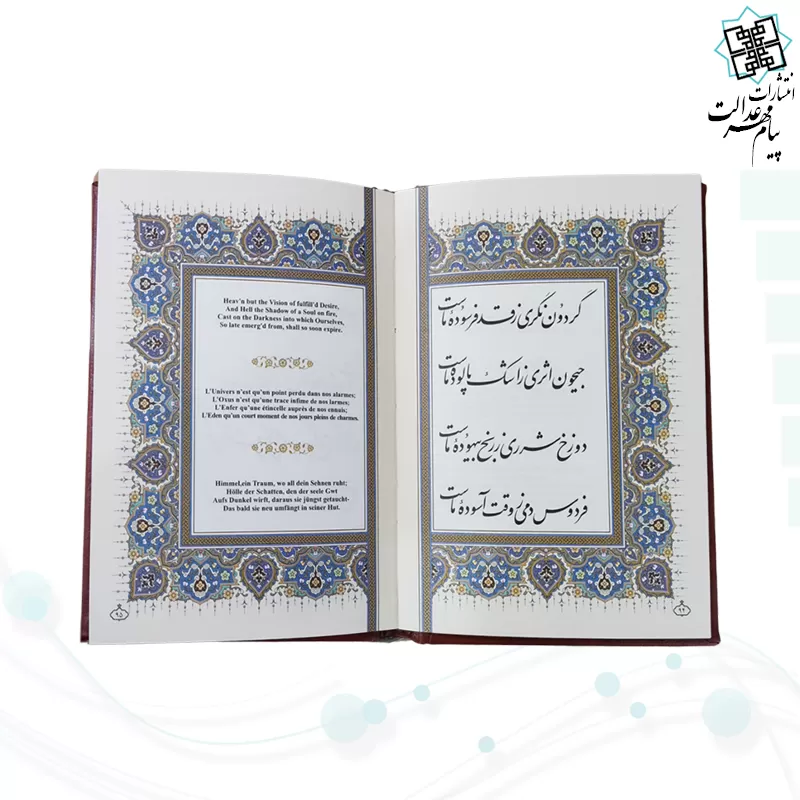 انتشارات
پیام مهر عدالت
گردون نگری ز قد فرسودهٔ ماست
جیحون اثری ز اشک پالودهٔ ماست
دوزخ شرری ز رنج بیهودهٔ ماست
فردوس دمی ز وقت آسودهٔ ماست
۹۴
Heav'n but the Vision of fulfill'd Desire,
And Hell the Shadow of a Soul on fire,
Cast on the Darkness into which Ourselves,
So late emerg'd from, shall so soon expire.
L'Univers n'est qu'un point perdu dans nos alarmes;
L'Oxus n'est qu'une trace infime de nos larmes;
L'Enfer qu'une étincelle auprès de nos ennais;
L'Eden qu'un court moment de nos jours pleins de charmes.
Himmel,ein Traum, wo all dein Sehnen ruht;
Hölle der Schatten, den der seele Gwt
Aufs Dunkel wirft, daraus sie jüngst getaucht-
Das bald sie neu umfängt in seiner Hut.
۹۵